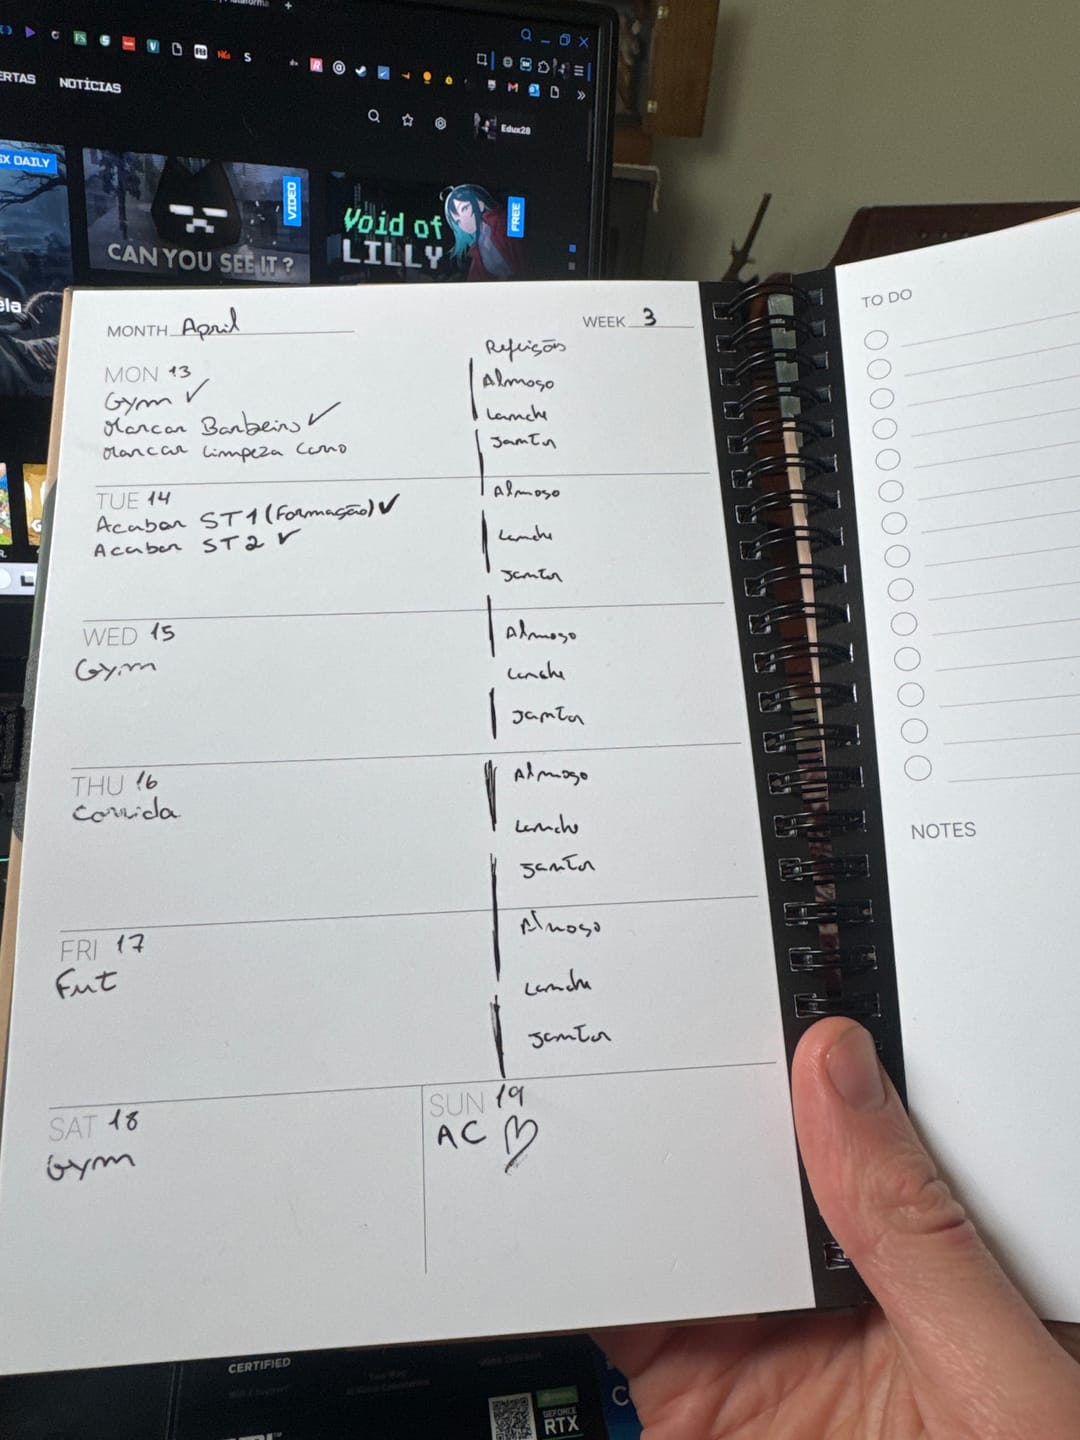 ERTAS NOTÍCIAS
Edux28
SX DAILY
CAN YOU SEE IT?
VIDEO
Void of
LILLY
FREE
ela
MONTH April
WEEK 3
Refeições
MON 13
Gym ✓
Marcar Barbeiro ✓
Marcar Limpeza Carro
Almoço
Lanche
Jantar
TUE 14
Acabar ST1 (Formação) ✓
Acabar ST2 ✓
Almoço
Lanche
Jantar
WED 15
Gym
Almoço
Lanche
Jantar
THU 16
Corrida
Almoço
Lanche
Jantar
FRI 17
Fut
Almoço
Lanche
Jantar
SAT 18
Gym
SUN 19
AC ♡
TO DO
NOTES
CERTIFIED
GEFORCE
RTX